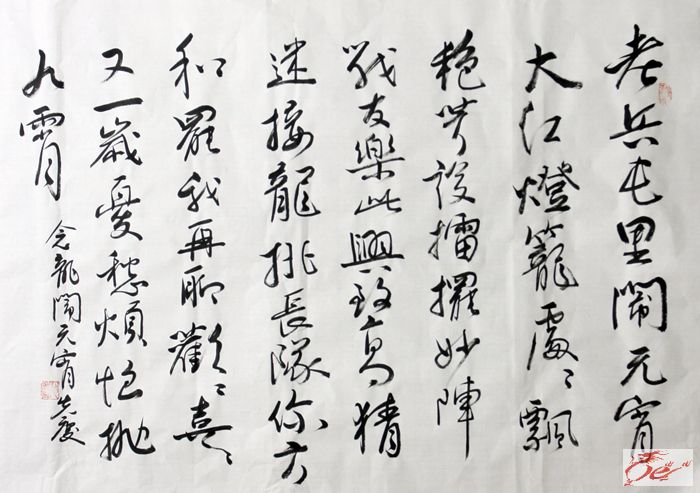 老兵屯里鬧元宵
大红燈籠處〻飄
艳設擂擺妙陣
戰友樂此興致高猜
迷接龍排長隊你方
和罷我再聊歡〻喜〻
又一歲憂愁煩惱抛
九霄
念龍鬧元宵慶